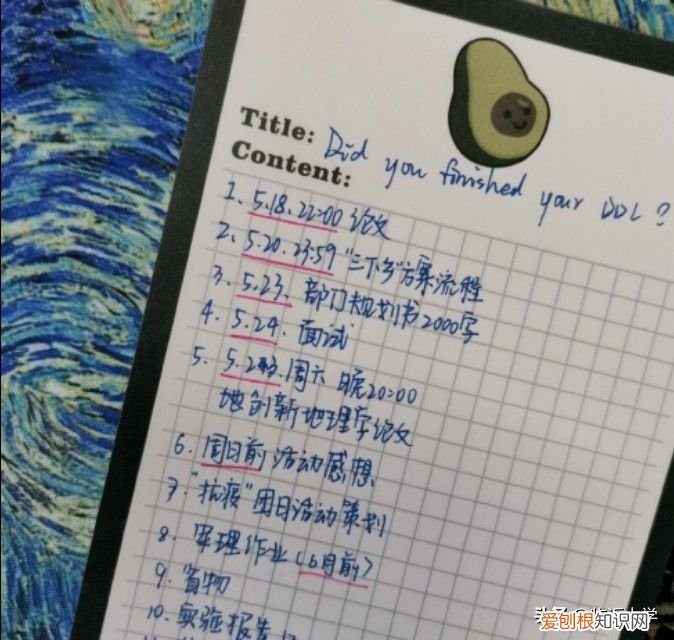 Title: Did you finished your DDL?
Content:
1. 5.18. 22:00 论文
2. 5.20. 23:59 "三下乡"方案流程
3. 5.23. 部门规划书2000字
4. 5.24. 面试
5. 5.23. 周六 晚20:00
地创新地理学论文
6. 周日前 活动感想
7. "抗疫"团日活动策划
8. 军理作业(6月前)
9.
10. 实验报告
爱创根知识网